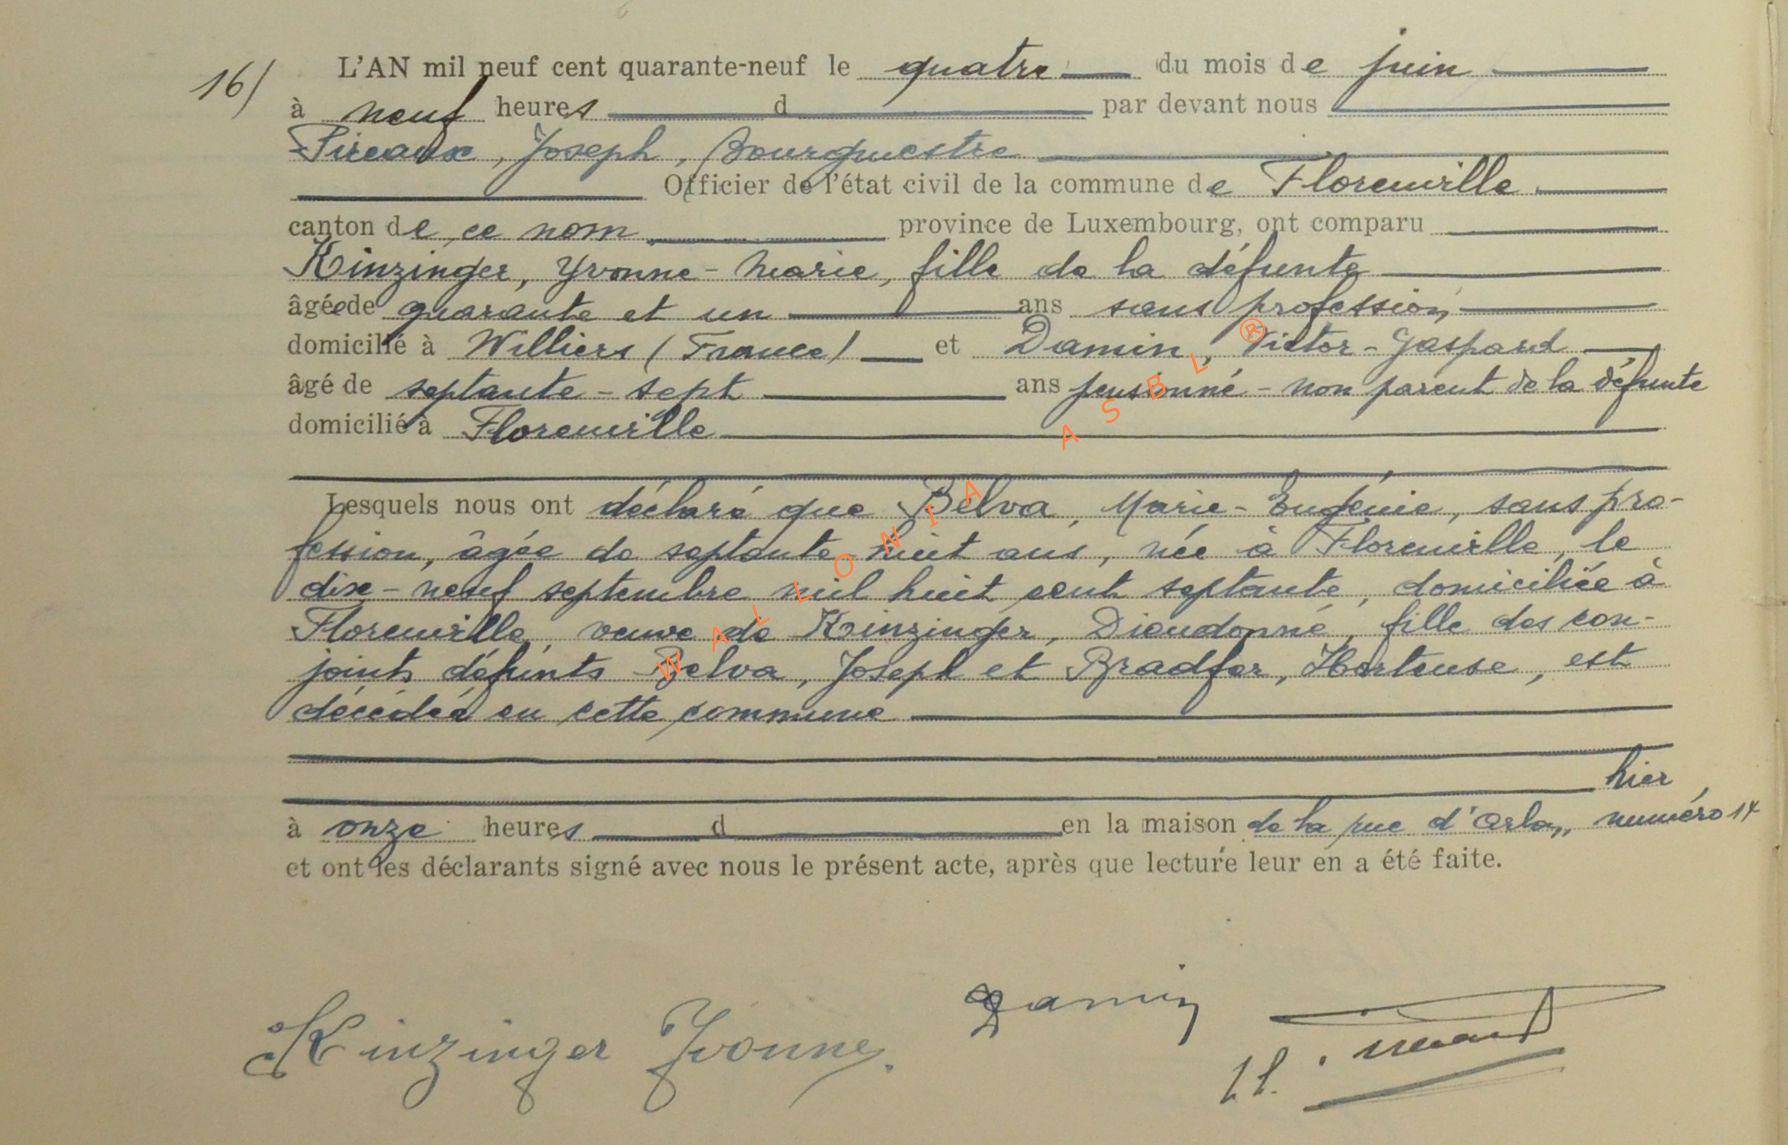 16/ L'AN mil neuf cent quarante-neuf le quatre du mois de juin
à neuf heures d par devant nous
Pireaux, Joseph, Bourgmestre
Officier de l'état civil de la commune de Florenville
canton de ce nom province de Luxembourg, ont comparu
Kinzinger, Yvonne-Marie, fille de la défunte
âgée de quarante et un ans sans profession,
domicilié à Williers (France) et Damin, Victor-Gaspard
âgé de septante-sept ans pensionné - non parent de la défunte
domicilié à Florenville
Lesquels nous ont déclaré que Belva, Marie-Eugénie, sans pro-
fession, âgée de septante-huit ans, née à Florenville, le
dix-neuf septembre mil huit cent septante, domiciliée à
Florenville, veuve de Kinzinger, Dieudonné, fille des con-
joints défunts Belva, Joseph et Bradfer, Hortense, est
décédée en cette commune
hier
à onze heures d en la maison de la rue d'Arlon, numéro 14
et ont les déclarants signé avec nous le présent acte, après que lecture leur en a été faite.
Kinzinger Yvonne. Damin
WALLONIA ASBL ®